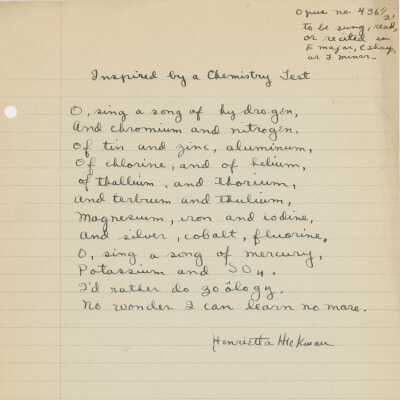 Opus no. 436 1/2!
to be sung, read,
or recited in
E major, C sharp,
or F minor.
Inspired by a Chemistry Test
O, sing a song of hydrogen,
And chromium and nitrogen,
Of tin and zinc, aluminum,
Of chlorine, and of helium,
Of thallium, and thorium,
And terbium and thulium,
Magnesium, iron and iodine,
And silver, cobalt, fluorine,
O, sing a song of mercury,
Potassium and SO4.
I'd rather do zoölogy.
No wonder I can learn no more.
Henrietta Hickman